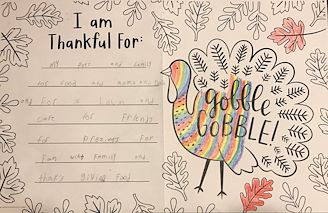 I am
Thankful For:
my pets and family
for food and mama and
and For a Lovin and
care for Friends
for presents For
Fun with Family and
that's giving Food
gobble
GOBBLE!